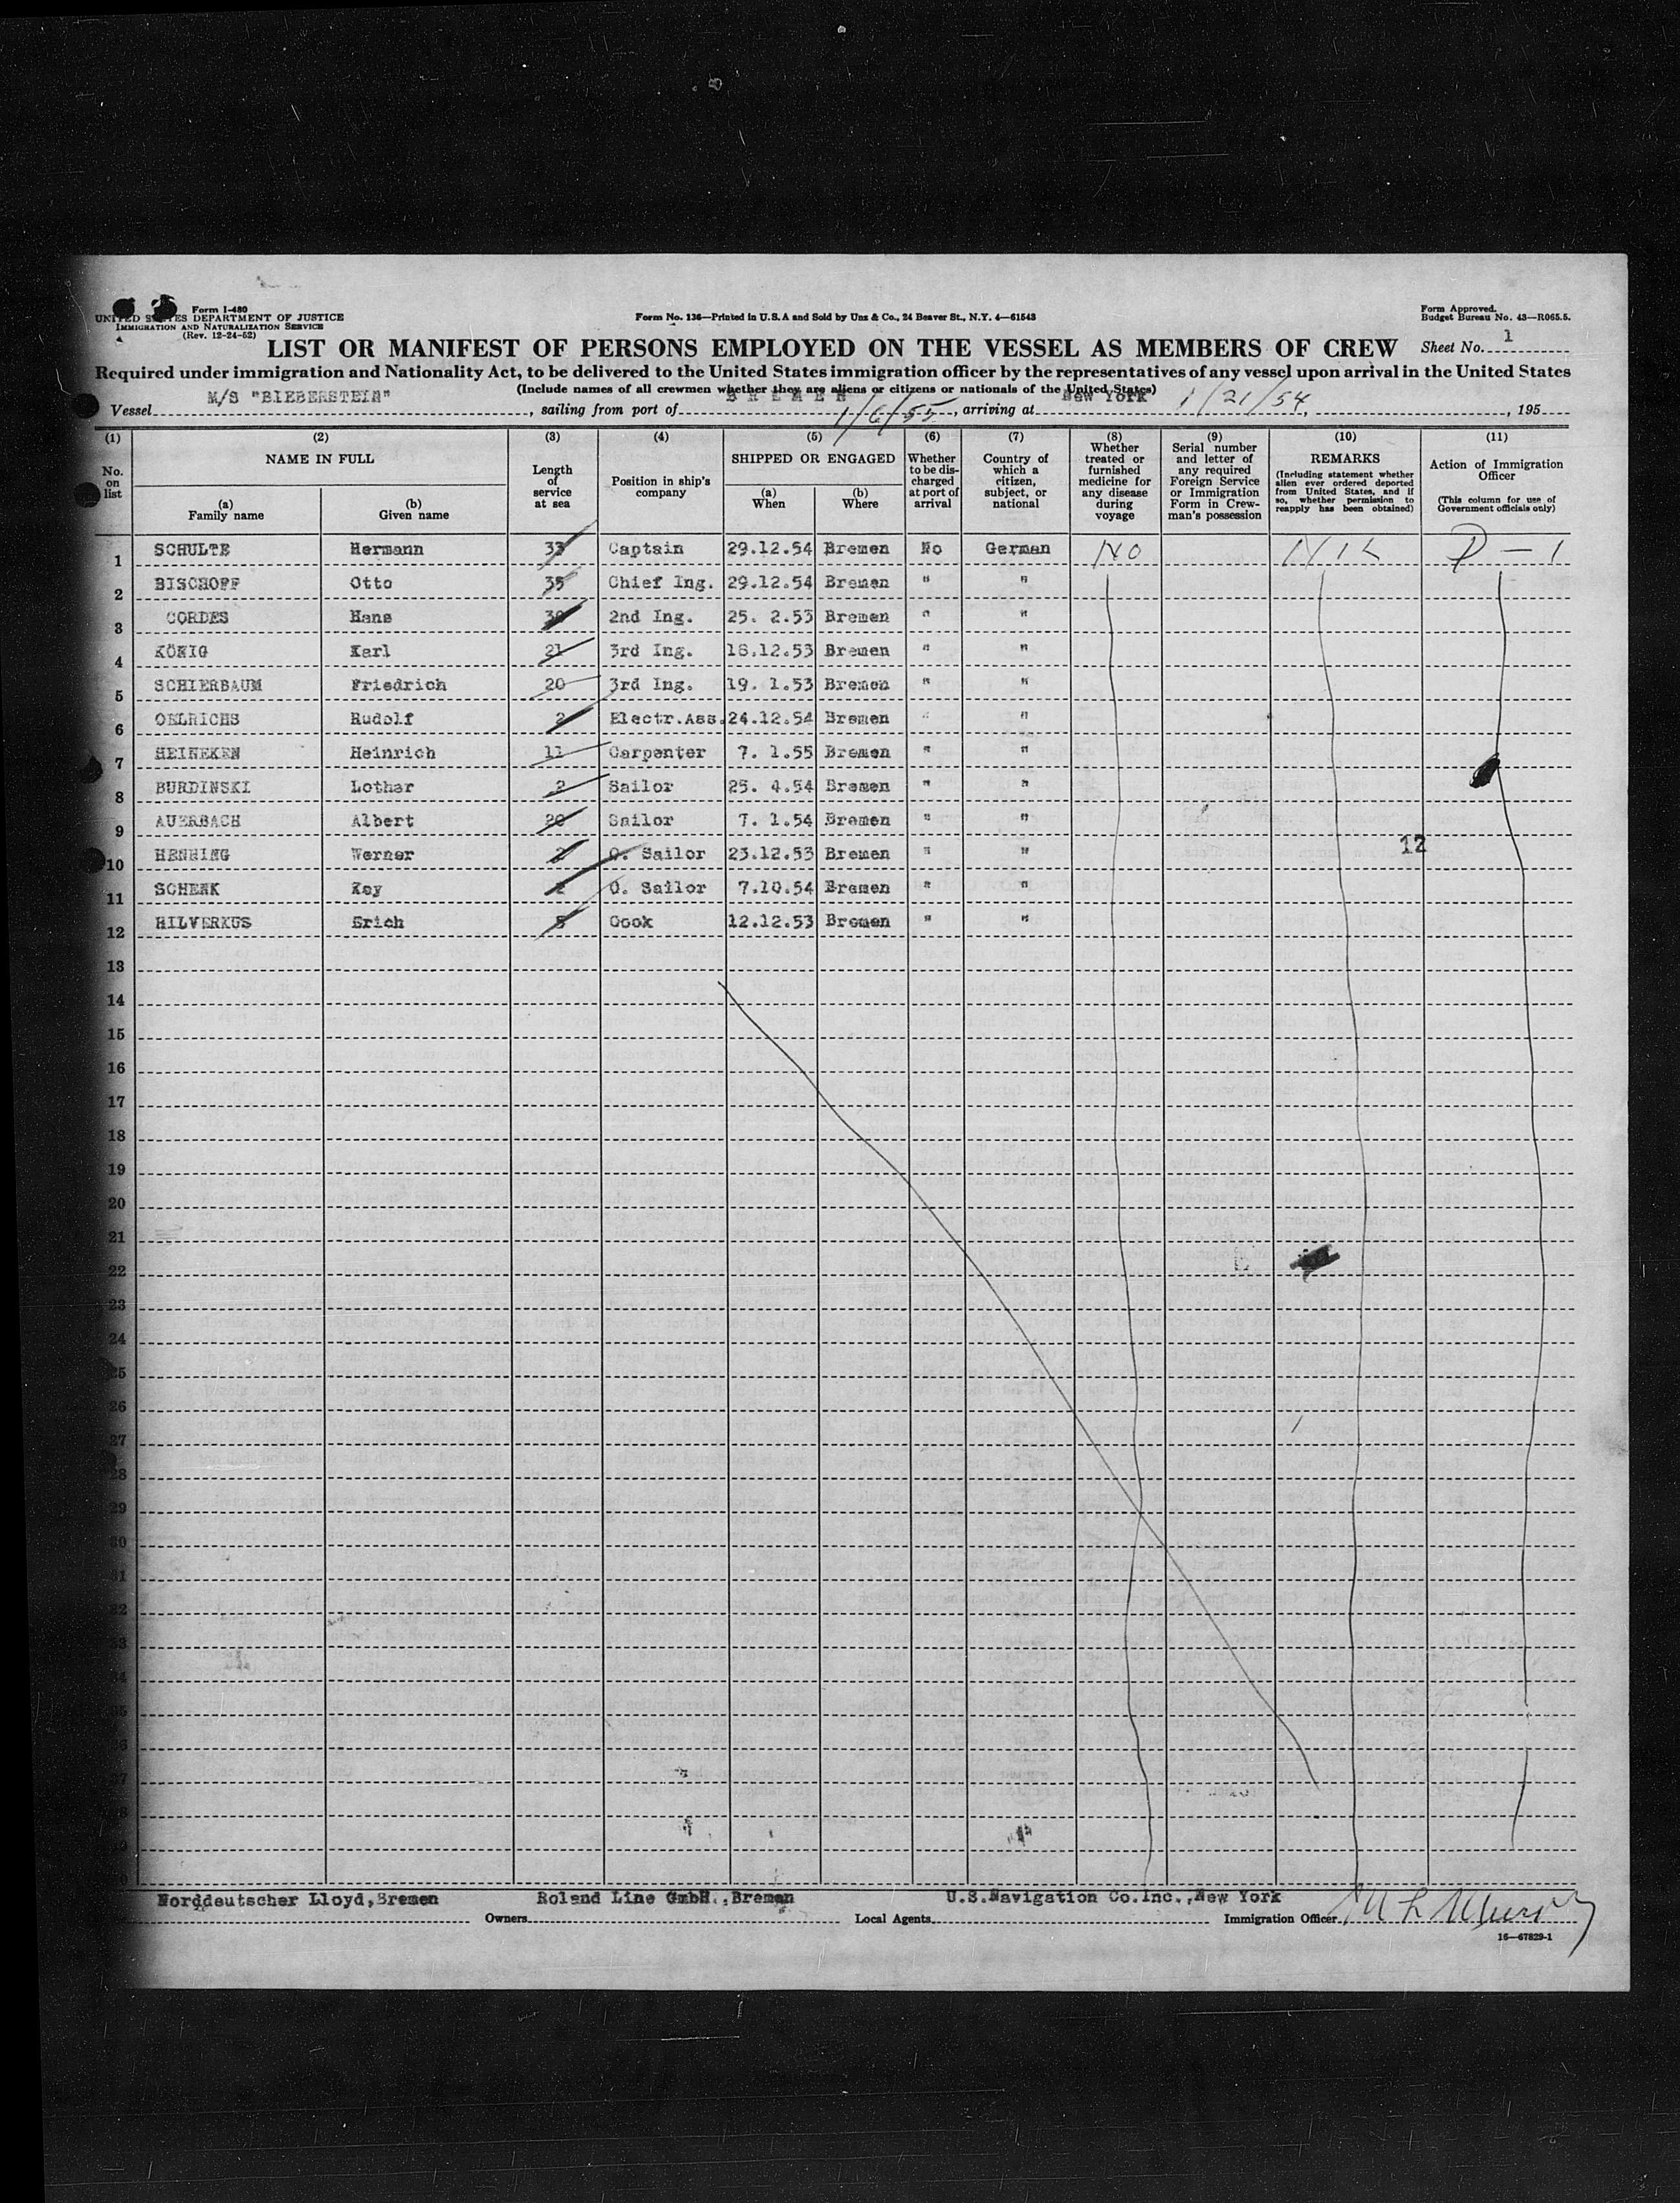 Form I-480
UNITED STATES DEPARTMENT OF JUSTICE
IMMIGRATION AND NATURALIZATION SERVICE
(Rev. 12-24-52)
Form No. 136—Printed in U.S.A and Sold by Unz & Co., 24 Beaver St., N.Y. 4—61543
Form Approved.
Budget Bureau No. 43—R065.5.
LIST OR MANIFEST OF PERSONS EMPLOYED ON THE VESSEL AS MEMBERS OF CREW
Sheet No. 1
Required under immigration and Nationality Act, to be delivered to the United States immigration officer by the representatives of any vessel upon arrival in the United States
(Include names of all crewmen whether they are aliens or citizens or nationals of the United States)
Vessel M/S "BIEBERSTEIN", sailing from port of BREMEN 1/6/55, arriving at New York 1/21/54, , 195
(1) No. on list
(2) NAME IN FULL
(a) Family name
(b) Given name
(3) Length of service at sea
(4) Position in ship's company
(5) SHIPPED OR ENGAGED
(a) When
(b) Where
(6) Whether to be discharged at port of arrival
(7) Country of which a citizen, subject, or national
(8) Whether treated or furnished medicine for any disease during voyage
(9) Serial number and letter of any required Foreign Service or Immigration Form in Crewman's possession
(10) REMARKS (Including statement whether alien ever ordered deported from United States, and if so, whether permission to reapply has been obtained)
(11) Action of Immigration Officer (This column for use of Government officials only)
1 SCHULTE Hermann 33 Captain 29.12.54 Bremen No German NO NIL D-1
2 BISCHOFF Otto 35 Chief Ing. 29.12.54 Bremen " "
3 CORDES Hans 30 2nd Ing. 25. 2.53 Bremen " "
4 KÖNIG Karl 21 3rd Ing. 18.12.53 Bremen " "
5 SCHIERBAUM Friedrich 20 3rd Ing. 19. 1.53 Bremen " "
6 OELRICHS Rudolf 2 Electr.Ass. 24.12.54 Bremen " "
7 HEINEKEN Heinrich 11 Carpenter 7. 1.55 Bremen " "
8 BURDINSKI Lothar 2 Sailor 25. 4.54 Bremen " "
9 AUERBACH Albert 20 Sailor 7. 1.54 Bremen " "
10 HENNING Werner 2 O. Sailor 23.12.53 Bremen " " 12
11 SCHENK Kay O. Sailor 7.10.54 Bremen " "
12 HILVERKUS Erich 5 Cook 12.12.53 Bremen " "
13
14
15
16
17
18
19
20
21
22
23
24
25
26
27
28
29
30
31
32
33
34
35
36
37
38
39
Norddeutscher Lloyd, Bremen Roland Line GmbH., Bremen U.S.Navigation Co.Inc., New York
Owners Local Agents Immigration Officer
16—67829-1